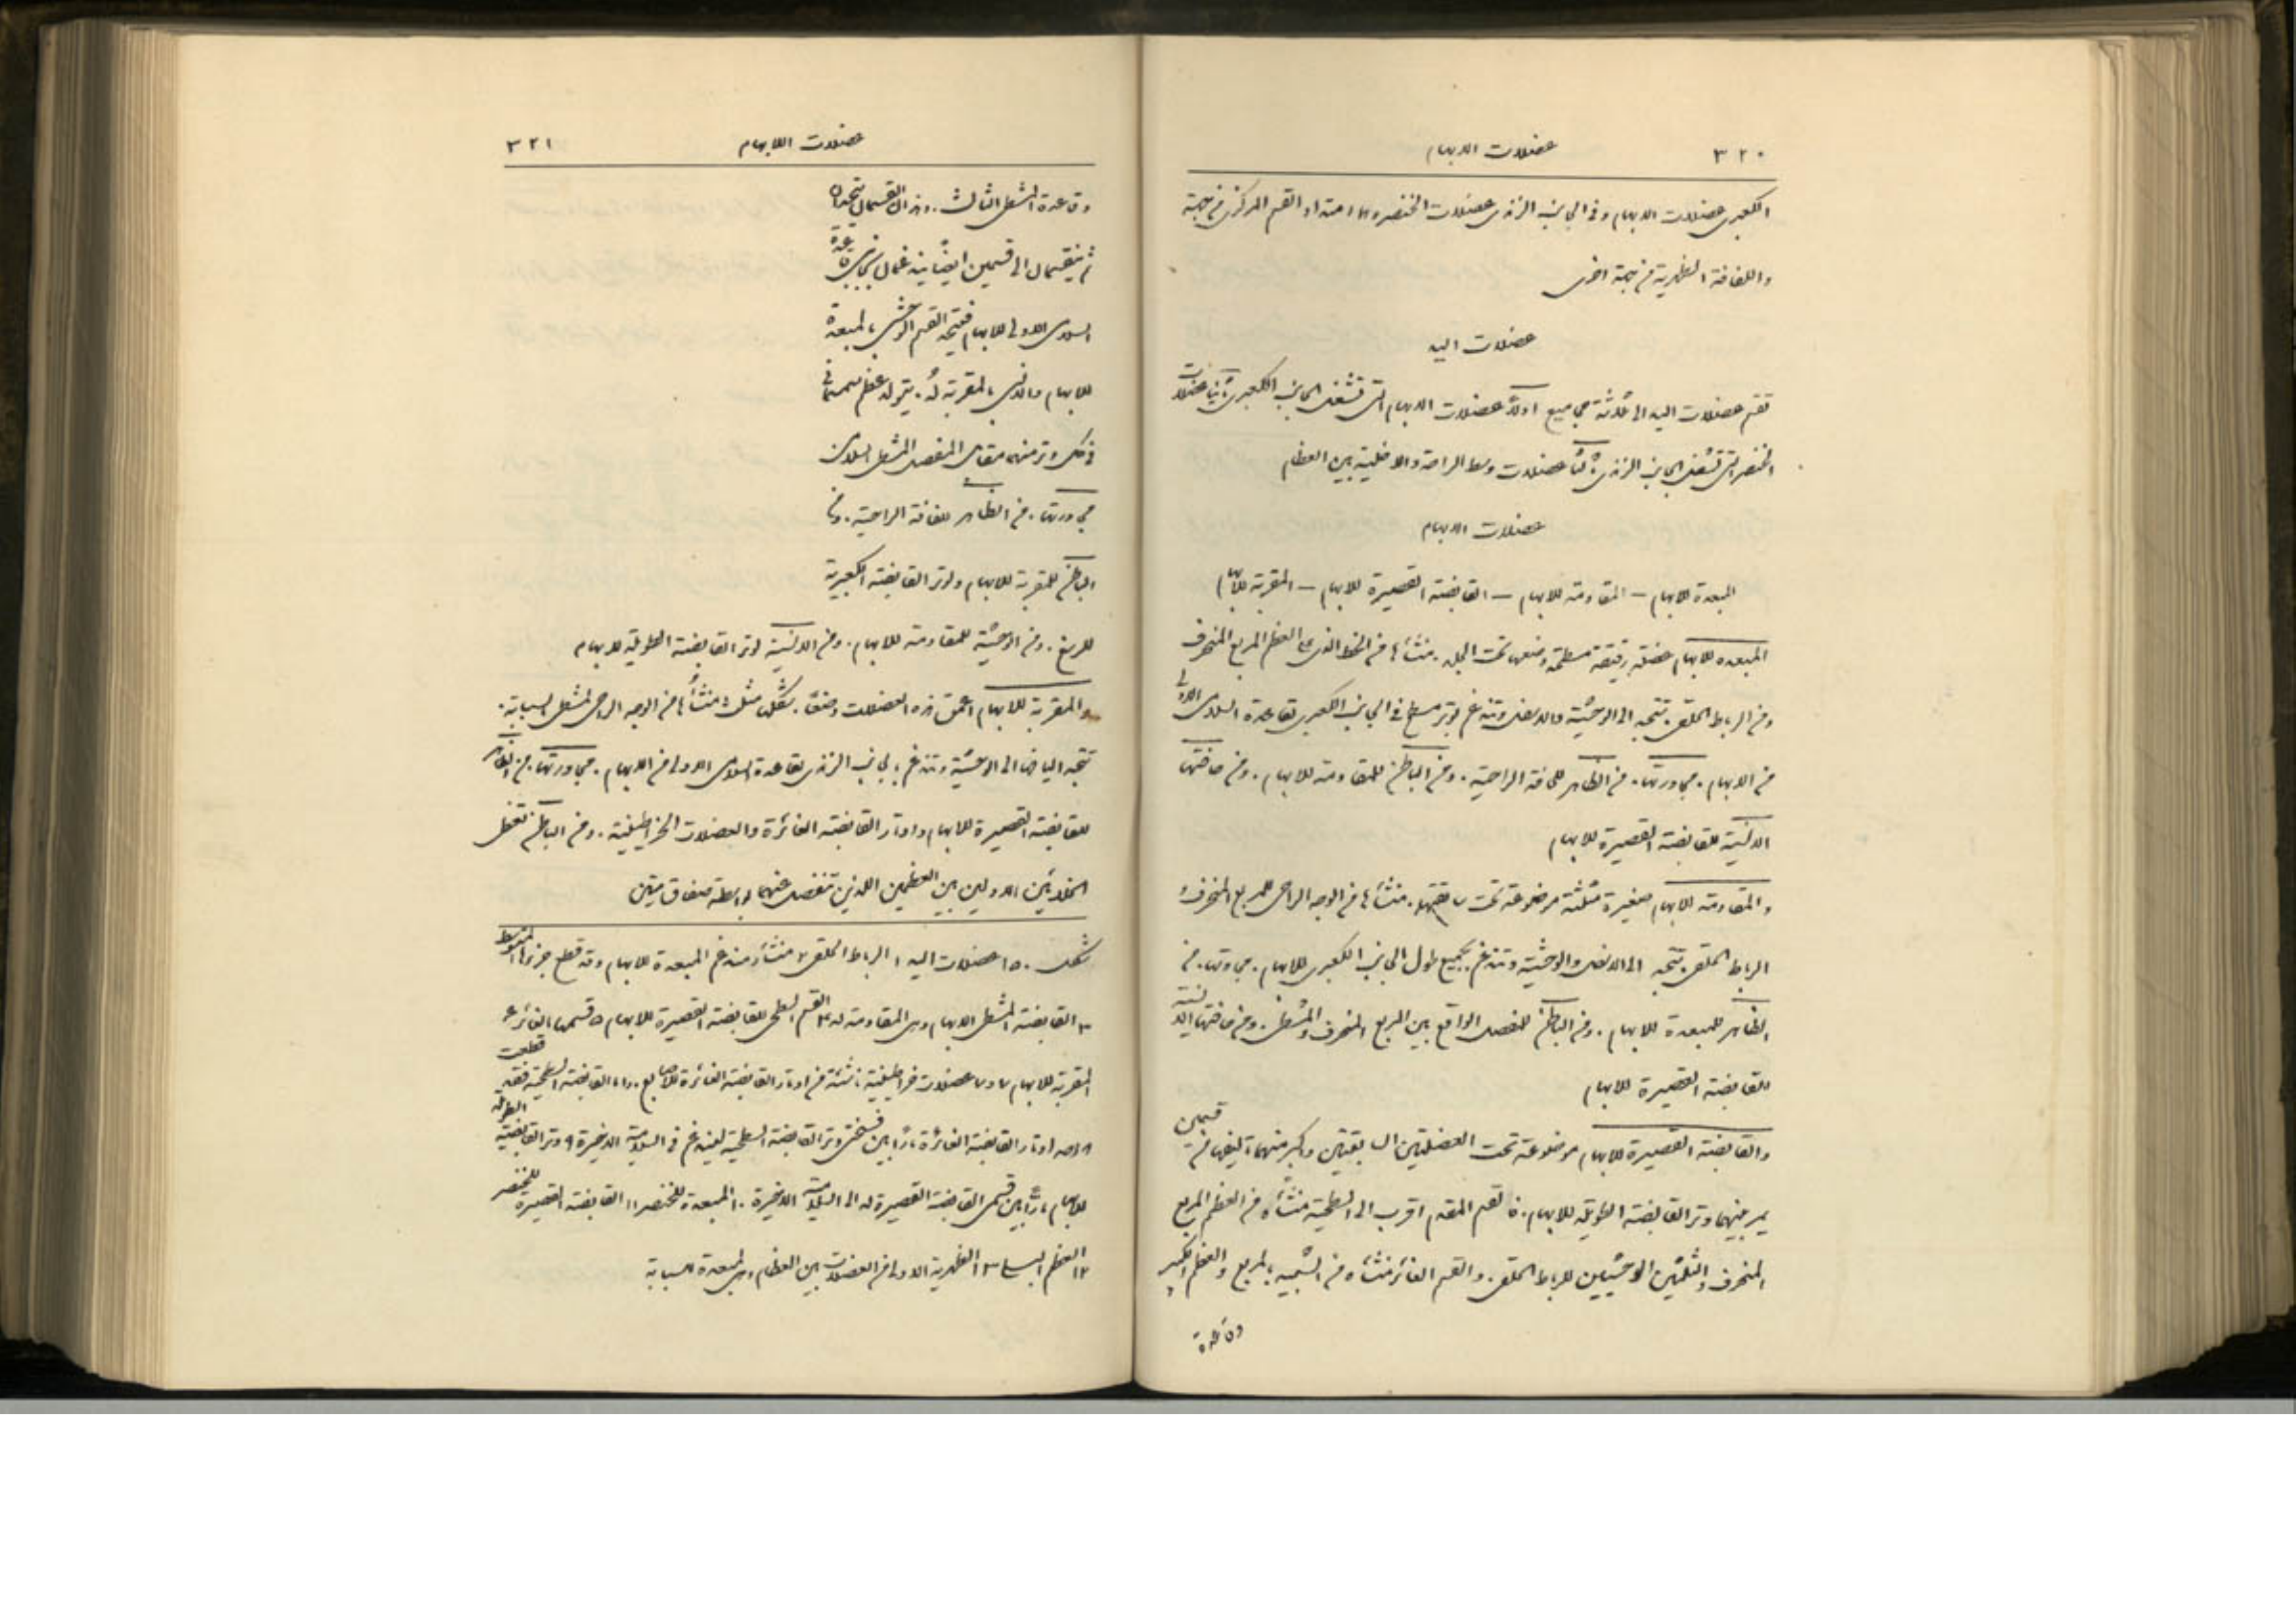 ٣٢٠
عضلات الابهام
الكعبري عضلات الابهام وفي الجانب الزندي عضلات الخنصر وهما امتداد القسم المركزي من جهة
واللفافة الظهرية من جهة اخرى
عضلات اليد
تقسم عضلات اليد الى ثلاثة مجاميع اولاً عضلات الابهام التي تشغل الجانب الكعبري ثانياً عضلات
الخنصر التي تشغل الجانب الزندي ثالثاً عضلات وسط الراحة والداخلية بين العظام
عضلات الابهام
المبعدة للابهام – المقاومة للابهام – القابضة القصيرة للابهام – المقربة للابهام
المبعده للابهام عضلة رقيقة مسطحة وضعها تحت الجلد. منشأها من الخط الذي على العظم المربع المنحرف
ومن الرباط الحلقي. تتجه الى الوحشية والاسفل وتندغم بوتر مسطح في الجانب الكعبري لقاعدة السلامى الاولى
من الابهام. مجاورتها. من الظاهر للفافة الراحية. ومن الباطن للمقاومة للابهام. ومن حافتها
الانسية للقابضة القصيرة للابهام
والمقاومة للابهام صغيرة مثلثة موضوعة تحت سابقتها. منشأها من الوجه الراحي للمربع المنحرف و
الرباط الحلقي. تتجه الى الاسفل والوحشية وتندغم بجميع طول الجانب الكعبري للابهام. مجاورتها. من
الظاهر للمبعدة للابهام. ومن الباطن للمفصل الواقع بين المربع المنحرف والمشطي. ومن حافتها الانسية
للقابضة القصيرة للابهام
والقابضة القصيرة للابهام موضوعة تحت العضلتين السابقتين واكبر منهما تاليفها من قسمين
يمر بينهما وتر القابضة الطويلة للابهام. فالقسم المقدم اقرب الى السطحية منشأه من العظم المربع
المنحرف والثلثين الوحشيين للرباط الحلقي. والقسم الغائر منشأه من الشبيه بالمربع والعظم الكبير
وقاعدة
عضلات الابهام
٣٢١
وقاعدة المشطي الثالث. وهذان القسمان يتحدان
ثم ينقسمان الى قسمين ايضاً يندغمان بجانبي قاعدة
السلامى الاولى للابهام فيتحد القسم الوحشي بالمبعدة
للابهام والانسي بالمقربة له. يتولد عظم سمسماني
في كل وتر منهما مقابل المفصل المشطي السلامي
مجاورتها. من الظاهر للفافة الراحية. ومن
الباطن للمقربة للابهام ولوتر القابضة الكعبرية
للرسغ. ومن الوحشية للمقاومة للابهام. ومن الانسية لوتر القابضة الطويلة للابهام
والمقربة للابهام اعمق هذه العضلات وضعاً. شكلها مثلث. منشأها من الوجه الراحي لمشطي السبابة.
تتجه اليافها الى الوحشية وتندغم بالجانب الزندي لقاعدة السلامى الاولى من الابهام. مجاورتها. من الظاهر
للقابضة القصيرة للابهام واوتار القابضة الغائرة والعضلات الخراطينية. ومن الباطن تغطي
الخلائين الاولين بين العظمين اللذين تنفصل عنهما بواسطة صفاق متين
شكل ١٥٠ عضلات اليد ١ الرباط الحلقي ٢ منشأ ومندغم المبعدة للابهام وقد قطع جزؤها المتوسط
٣ القابضة لمشطي الابهام وهي المقاومة له ٤ القسم السطحي للقابضة القصيرة للابهام ٥ قسمها الغائر ٦
المقربة للابهام ٧ و ٧ عضلات خراطينية ناشئة من اوتار القابضة الغائرة للاصابع. واما القابضة السطحية فقد قطعت
٨ احد اوتار القابضة الغائرة ماراً بين فسختي وتر القابضة السطحية ليندغم في السلامية الاخيرة ٩ وتر القابضة الطويلة
للابهام ماراً بين قسمي القابضة القصيرة له الى السلامية الاخيرة ١٠ المبعدة للخنصر ١١ القابضة القصيرة للخنصر
١٢ العظم البسلي ١٣ الظهرية الاولى من العضلات بين العظام وهي المبعدة للسبابة